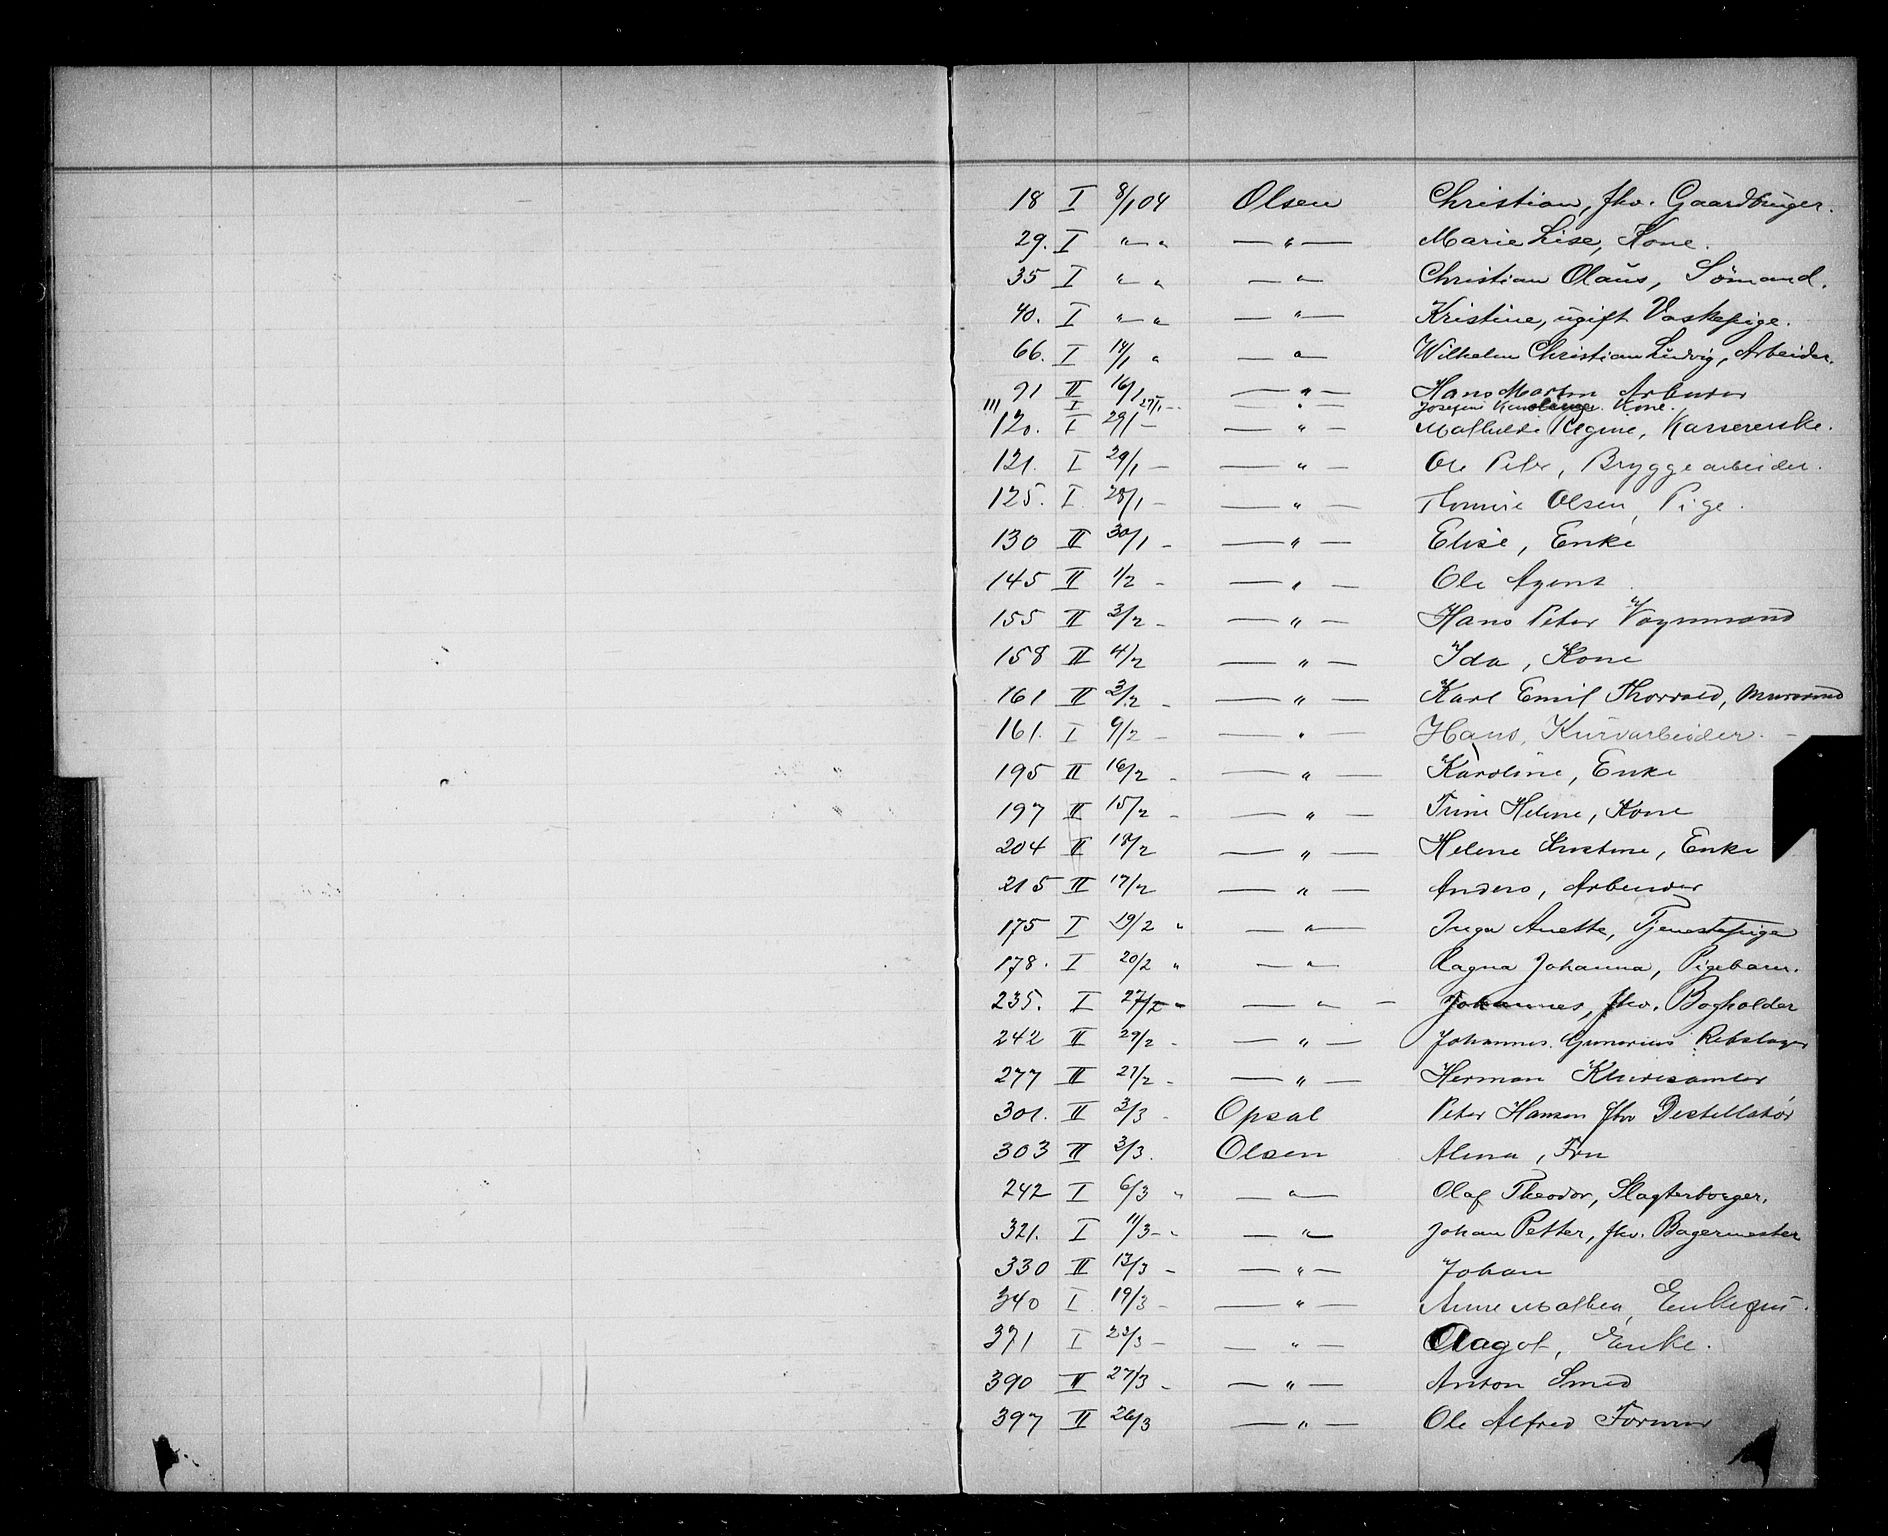 18 I 8/1 04 Olsen Christian, fhv. Gaardbruger.
29. I " — " — " — Marie Lise, Kone.
35 I " — " — " — Christian Olaus, Sømand.
40. I " — " — " — Kristine, ugift Vaskepige.
66. I 14/1 " — " — Wilhelm Christian Ludvig, Arbeider.
91 II 16/1 — " — Hans Martin Arbeider
111 I 27/1 - — " — Josefine Kone.
120. I 29/1 - — " — Mathilde Regine, Kassererske.
121. I 29/1 - — " — Ole Peter, Bryggearbeider.
125. I 28/1 - — " — Olsen, Pige.
130 II 30/1 - — " — Elise, Enke
145 II 1/2 - — " — Ole Agent
155 II 3/2 - — " — Hans Peter Vognmand
158 II 4/2 — " — Ida, Kone
161 II 3/2 - — " — Karl Emil Thorvald, Murermd
161. I 9/2 - — " — Hans, Kurvarbeider. -
195 II 16/2 - — " — Karoline, Enke
197 II 15/2 - — " — Trine Helene, Kone
204 II 18/2 — " — Helene Kristine, Enke
215 II 17/2 — " — Anders, Arbeider
175 I 19/2 " — " — Inga Anette, Tjenestepige
178. I 20/2 " — " — Ragna Johanna, Pigebarn.
235. I 27/2 - — " — Johannes, fhv. Bogholder
242 II 29/2 - — " — Johannes Gunerius Rebslager
277 II 27/2 - — " — Herman Kludesamler
301. II 3/3 - Opsal Peter Hansen fhv Destillatør
303 II 3/3. Olsen Alma, Fru
242 I 6/3 " — " — Olaf Theodor, Slagterborger.
321. I 11/3 - " — " — Johan Petter, fhv. Bagermester
330 II 13/3 - — " — Johan
340 I 19/3 - — " — Anne Mathea, Enkefru.
371 I 23/3 - — " — Aagot, Enke.
390 II 27/3 - — " — Anton Smed
397 II 26/3 — " — Ole Alfred Former